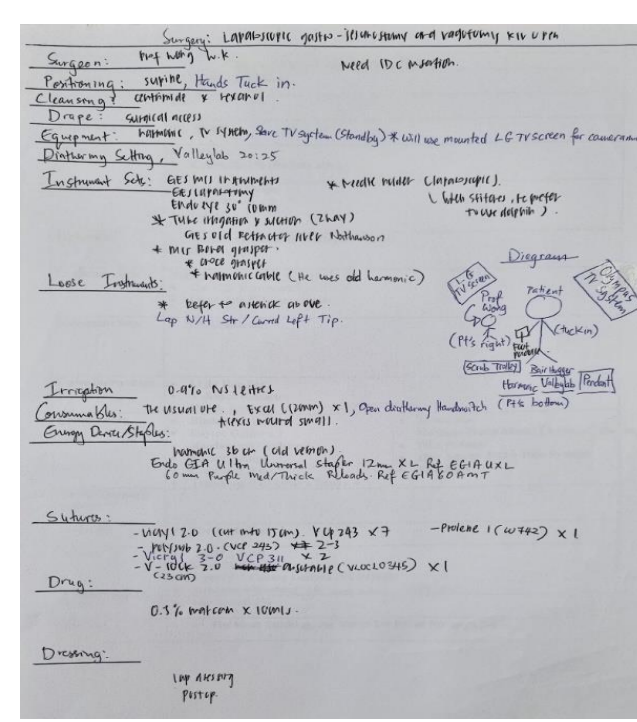 Surgery: Laparoscopic gastro-jejunostomy and vagotomy KIV open
Surgeon: Prof Wong W.K.
Need IDC insertion.
Positioning: supine, Hands Tuck in.
Cleansing: centrimide x hexanol.
Drape: surgical access
Equipment: harmonic, TV system, Slave TV system (Standby) * will use mounted LG TV screen for cameraman
Diathermy Setting, Valleylab 20:25
Instrument Sets: GES MIS instruments
* Needle holder (laparoscopic).
GES laparotomy
(when stitches, he prefer
Endoeye 30° 10mm
to use dolphin).
* Tube irrigation & suction (2way)
GES old Retractor liver Nathanson
* MIS Bowel grasper.
* croce grasper
* harmonic cable (He uses old harmonic)
Loose Instruments:
* Refer to asterick above.
Lap N/H Str / Curved Left Tip.
Diagram
LG TV screen
Prof Wong
Patient
Olympus TV System
(Pt's right)
(tuck in)
Foot
Scrub Trolley
Bair Hugger
Harmonic
Valleylab
Pendant
(Pt's bottom)
Irrigation 0.9% NS 1 litres
Consumables: The usual one., Excel (12mm) x 1, Open diathermy Handswitch
Alexis wound small.
Energy Device/Staples:
harmonic 36 cm (old version).
Endo GIA Ultra Universal Stapler 12mm XL Ref EGIAUXL
60mm Purple Med/Thick Reloads. Ref EGIA60AMT
Sutures:
- Vicryl 2.0 (cut into 15cm). VCP 243 x 7
- Prolene 1 (W742) x 1
- Polysorb 2.0. (VCP 243) 2-3
- Vicryl 3-0 VCP 311 x 2
- V-lock 2.0 absorbable (VLOCL0345) x 1
(23cm)
Drug:
0.5% marcain x 10mls.
Dressing:
Lap dressing
Postop.